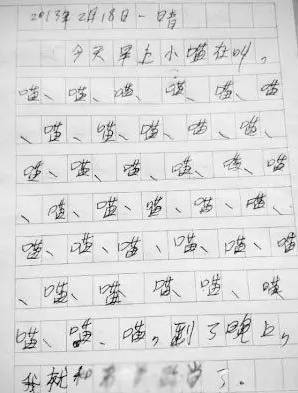 2013年2月18日 一 晴
今天早上小喵在叫,
喵、喵、喵、喵、喵、喵
、喵、喵、喵、喵、喵、
喵、喵、喵、喵、喵、喵
、喵、喵、喵、喵、喵、
喵、喵、喵、喵、喵、喵
、喵、喵、喵、喵、喵
喵、喵、喵,到了晚上,
我就和 了.